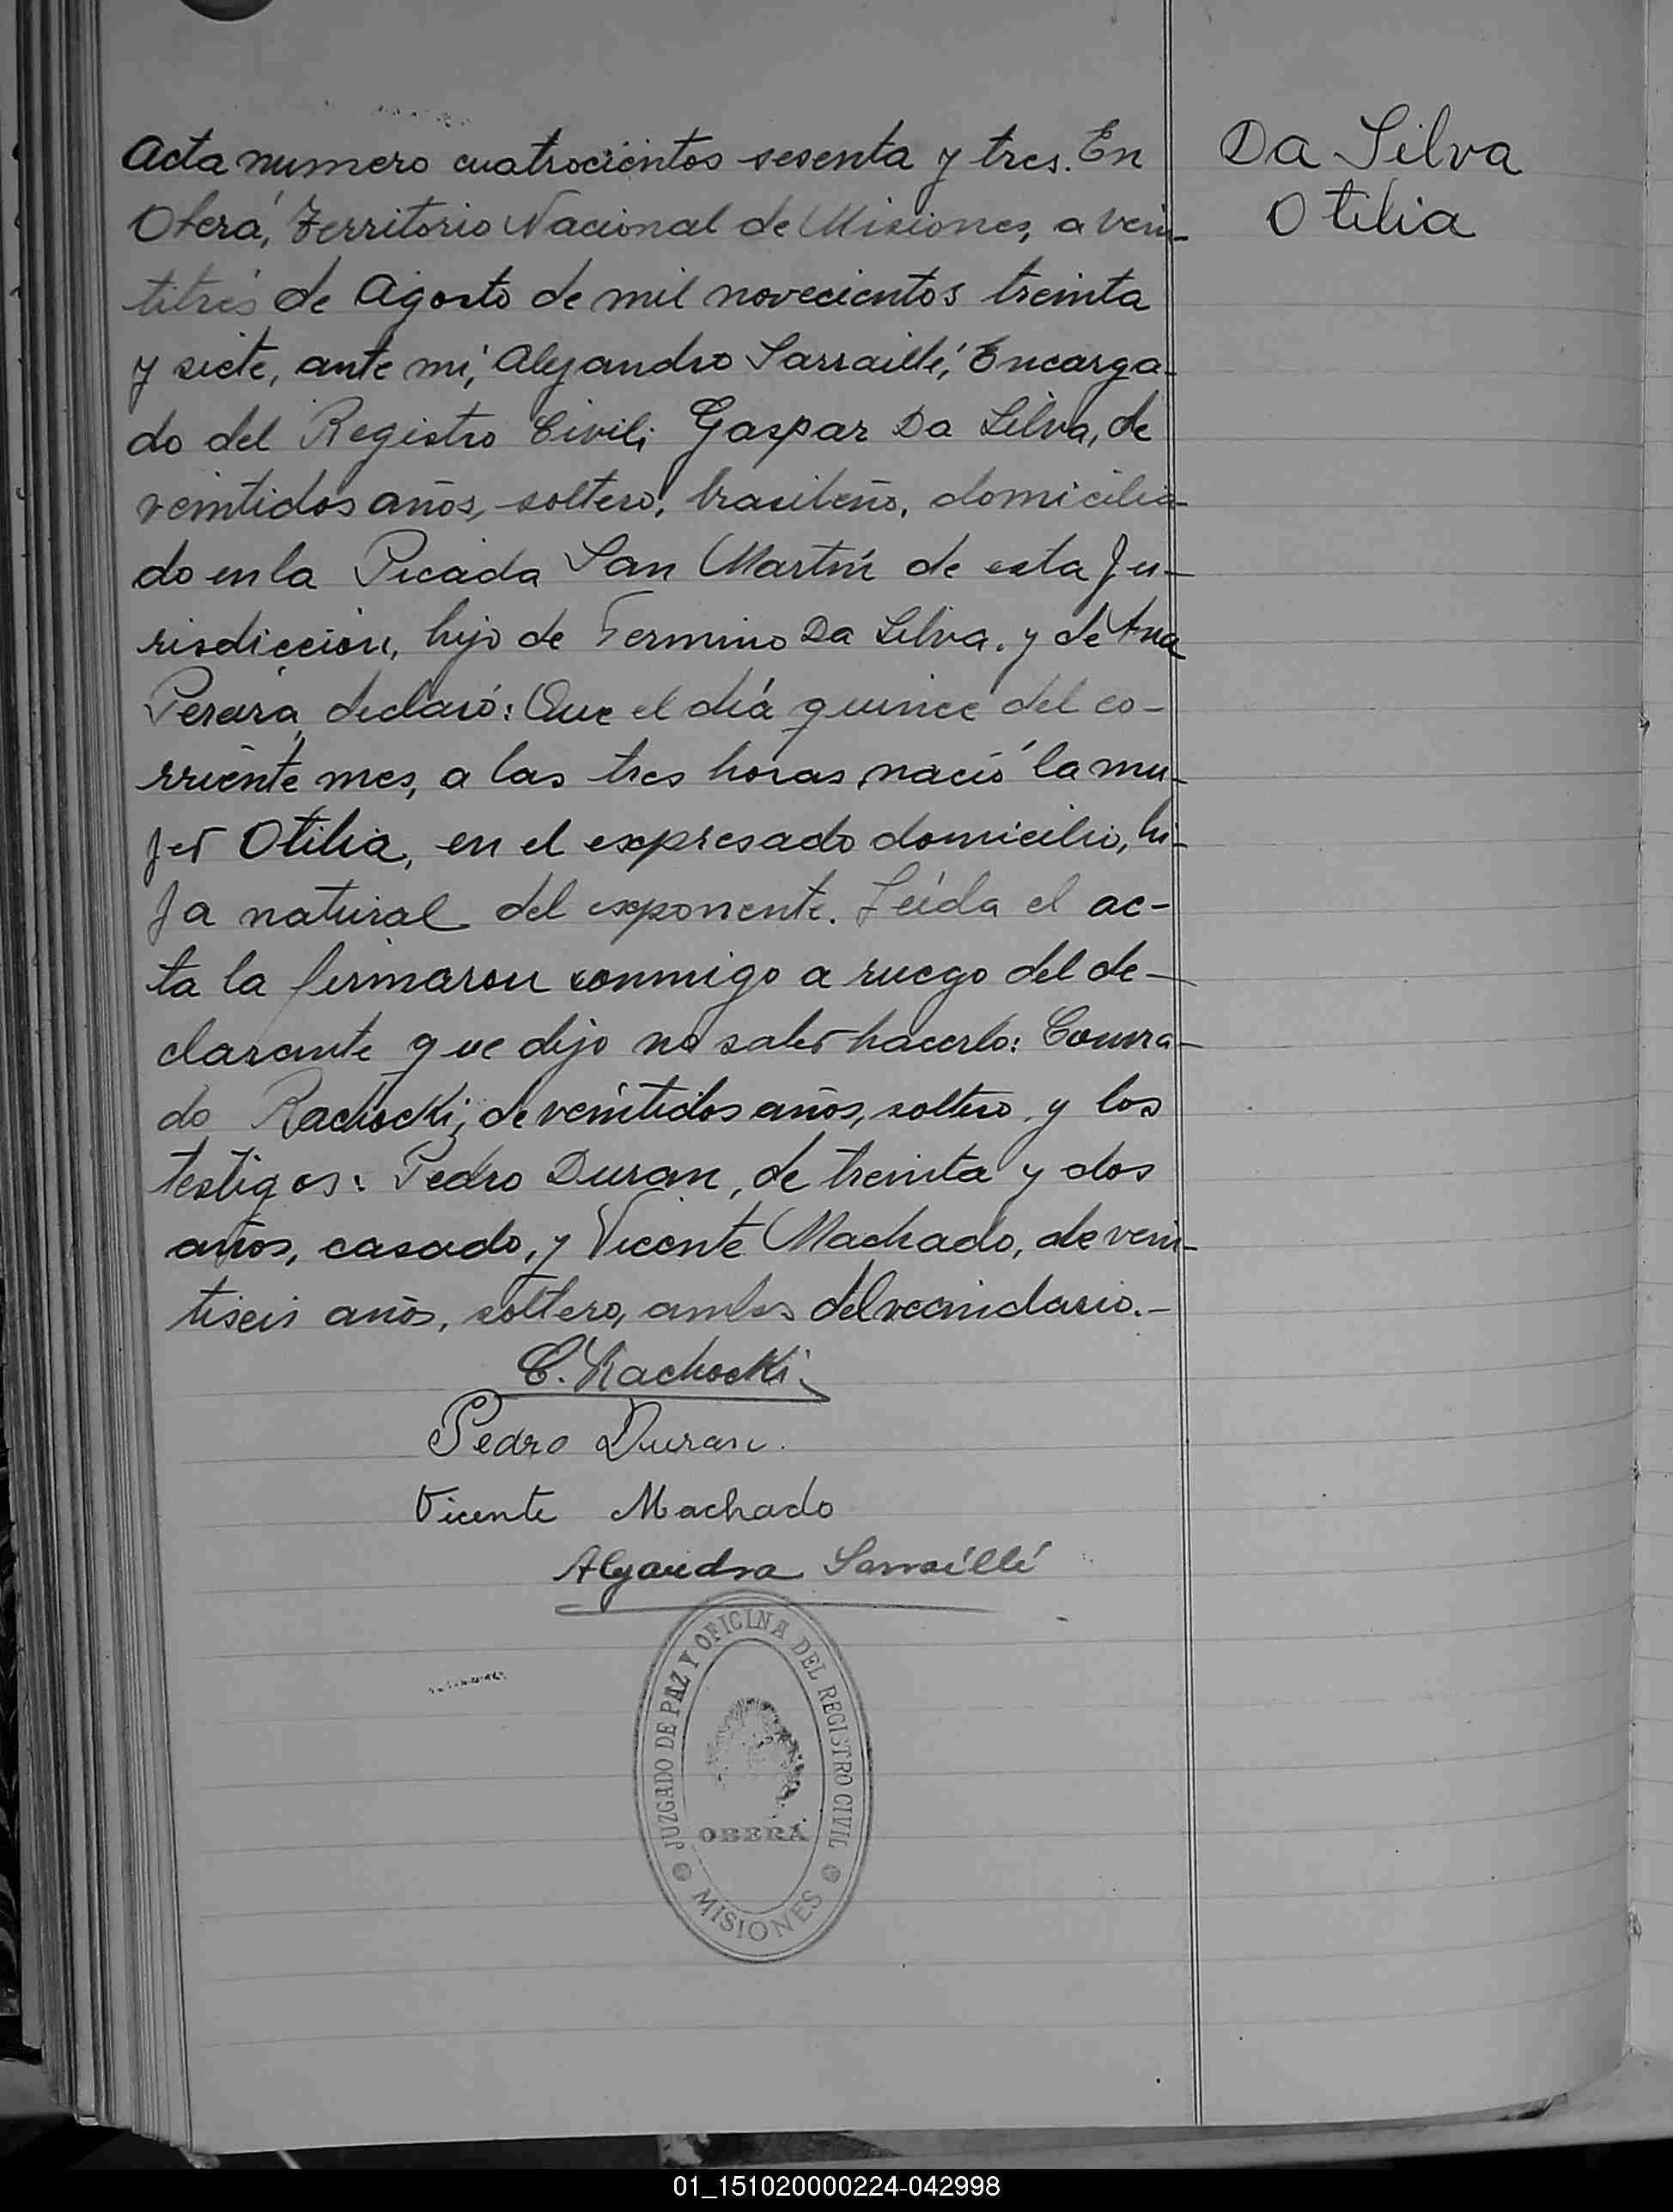 Acta numero cuatrocientos sesenta y tres. En
Oberá, Territorio Nacional de Misiones, a vein-
titrés de Agosto de mil novecientos treinta
y siete, ante mí, Alejandro Sarraillé, Encarga-
do del Registro Civil; Gaspar Da Silva, de
veintidos años, soltero, brasileño, domicilia-
do en la Picada San Martín de esta Ju-
risdicción, hijo de Fermino Da Silva. y de Ana
Pereira, declaró: Que el día quince del co-
rriente mes, a las tres horas, nació la mu-
jer Otilia, en el expresado domicilio, hi-
ja natural del exponente. Leída el ac-
ta la firmaron conmigo a ruego del de-
clarante que dijo no saber hacerlo: Conra-
do Rachocki, de veintidos años, soltero, y los
testigos: Pedro Duran, de treinta y dos
años, casado, y Vicente Machado, de vein-
tiseis años, soltero, ambos del vecindario.-
C. Rachocki
Pedro Duran.
Vicente Machado
Alejandro Sarraillé
JUZGADO DE PAZ Y OFICINA DEL REGISTRO CIVIL
OBERÁ
MISIONES
Da Silva
Otilia
01_151020000224-042998